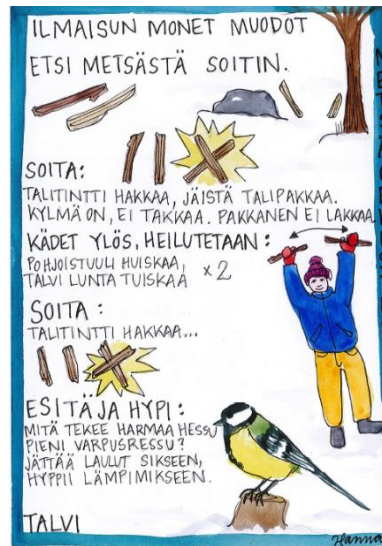 ILMAISUN MONET MUODOT
ETSI METSÄSTÄ SOITIN.
SOITA:
TALITINTTI HAKKAA, JÄISTÄ TALIPAKKAA.
KYLMÄ ON, EI TAKKAA. PAKKANEN EI LAKKAA.
KÄDET YLÖS, HEILUTETAAN:
POHJOISTUULI HUISKAA,
TALVI LUNTA TUISKAA x2
SOITA:
TALITINTTI HAKKAA...
ESITÄ JA HYPI:
MITÄ TEKEE HARMAA HESSU
PIENI VARPUSRESSU?
JÄTTÄÄ LAULUT SIKSEEN,
HYPPII LÄMPIMIKSEEN.
TALVI
Hanna